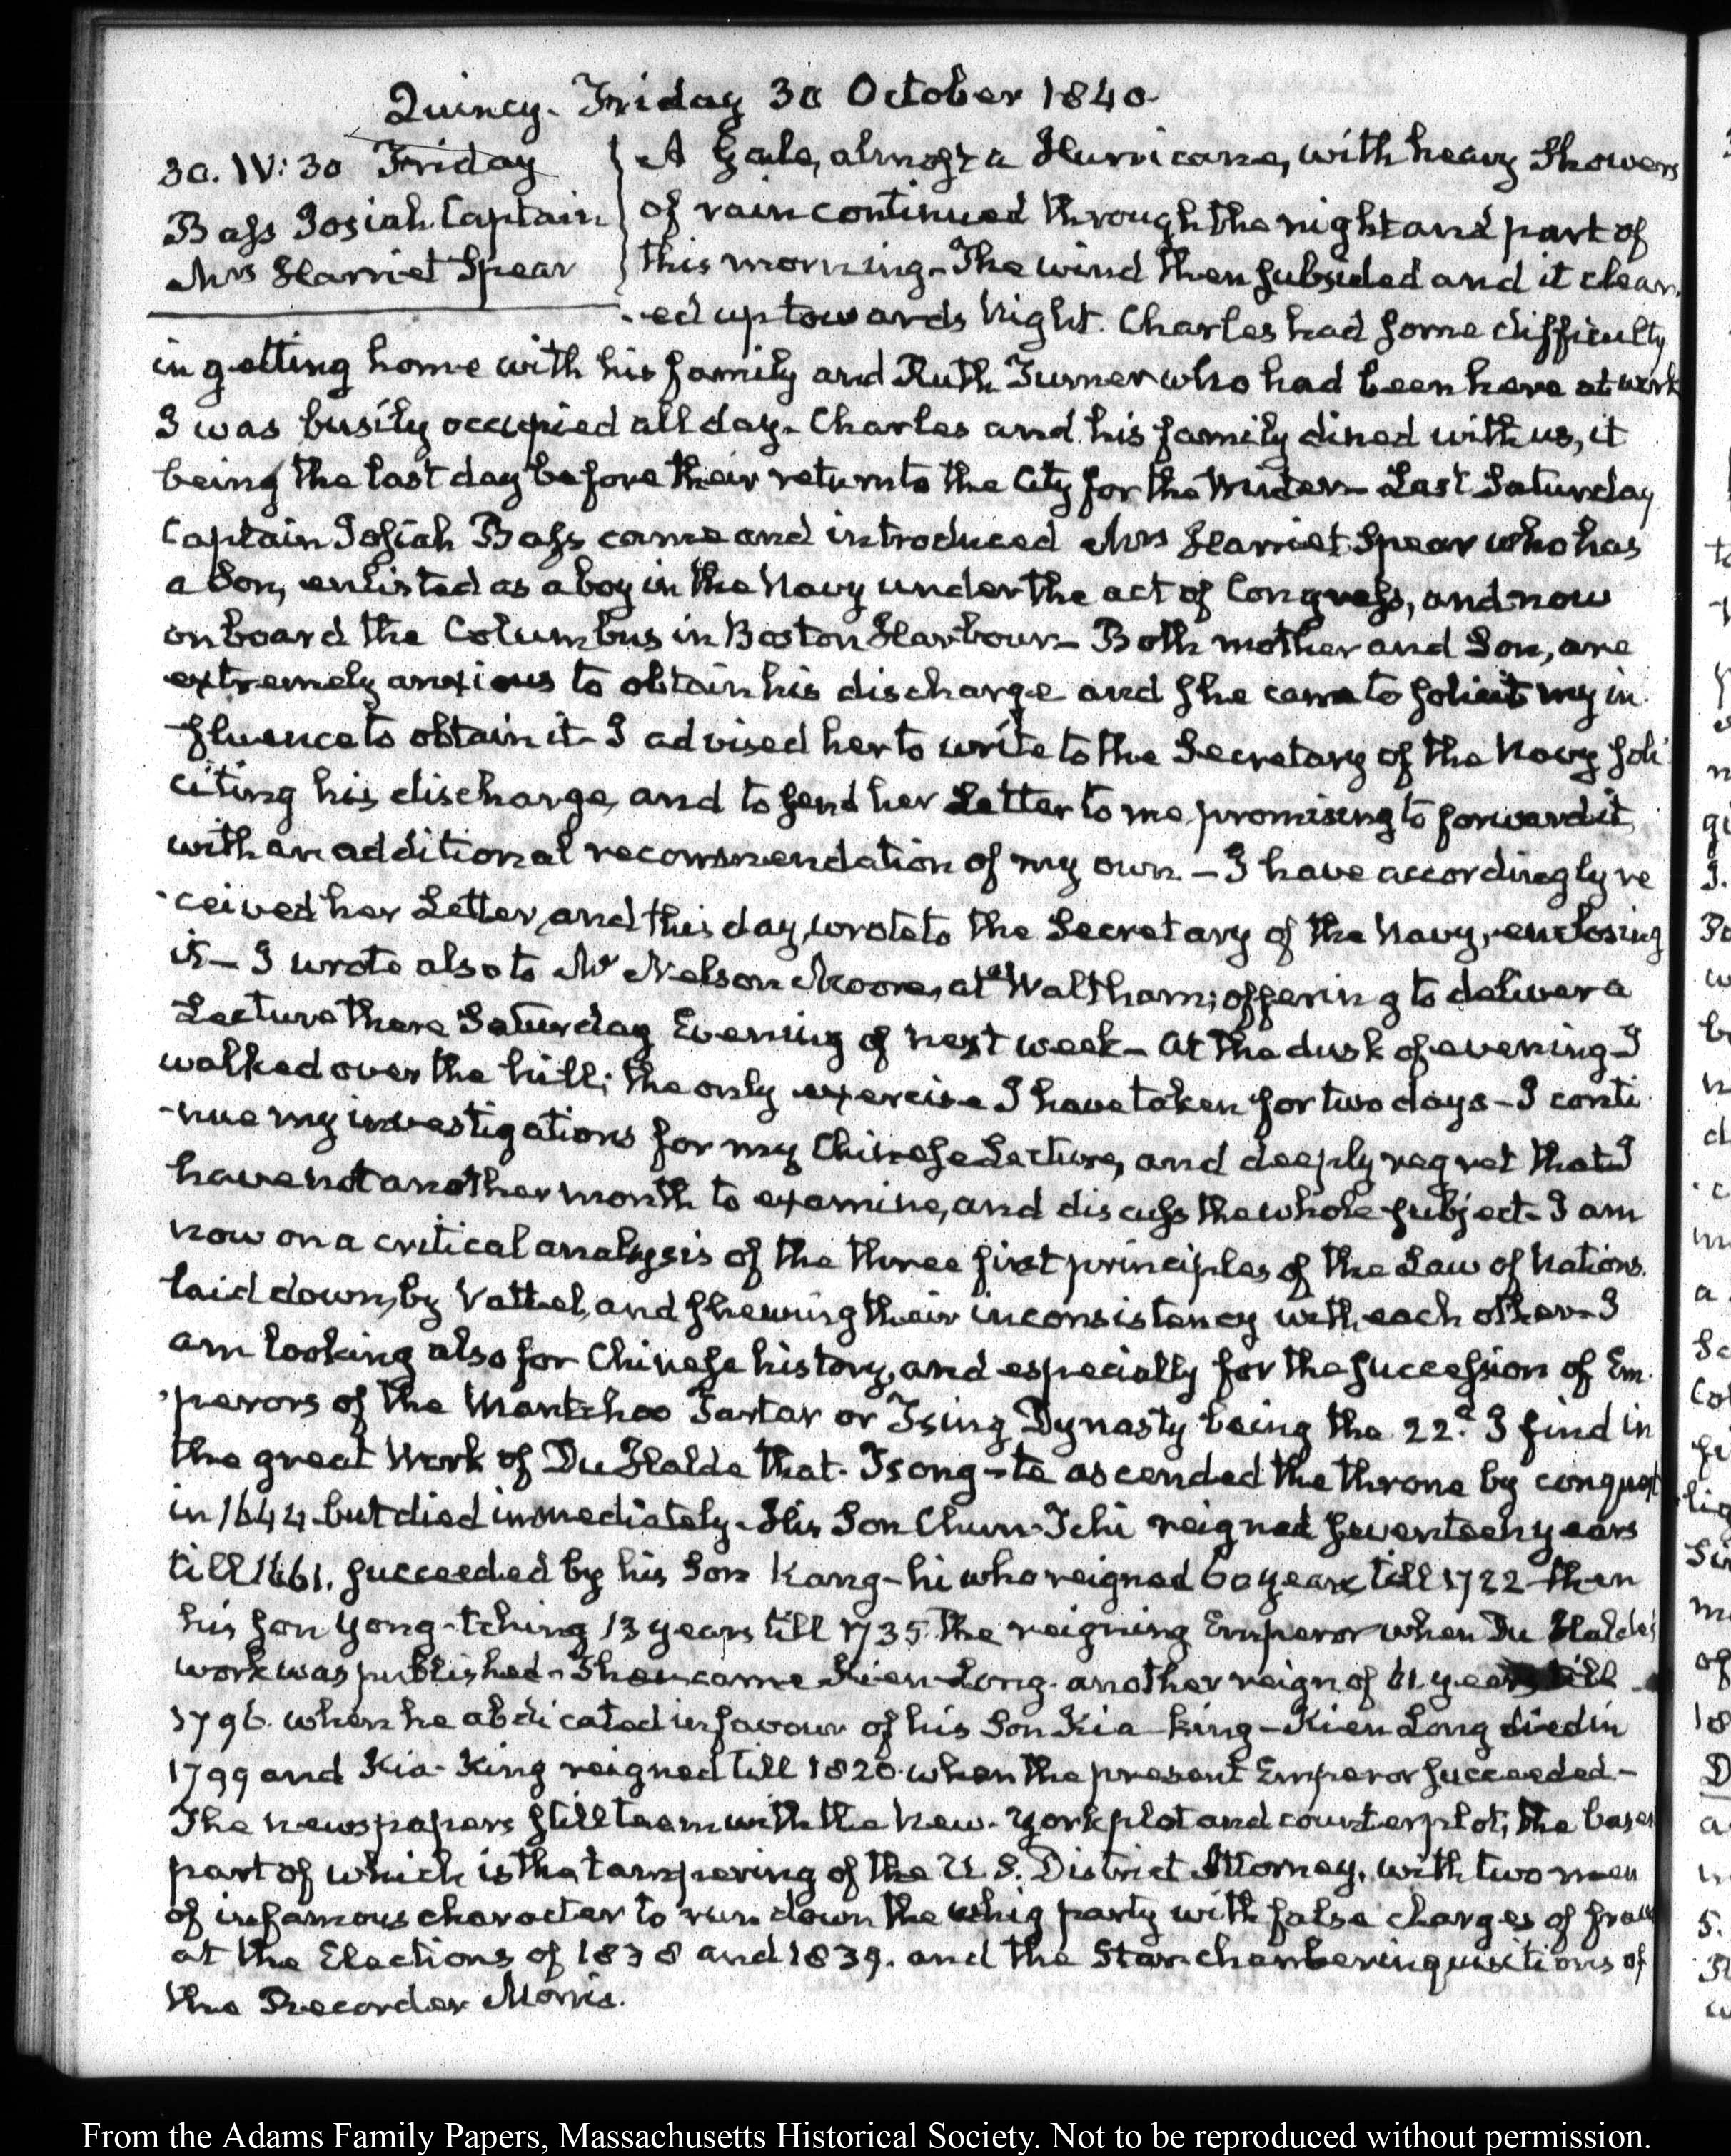 Quincy. Friday 30 October 1840.
30. IV:30 Friday
Bass Josiah Captain
Mrs Harriet Spear
A Gale, almost a Hurricane, with heavy Showers
of rain continued through the night and part of
this morning. The wind then subsided and it clear-
-ed up towards Night. Charles had some difficulty
in getting home with his family and Ruth Turner who had been here at work
I was busily occupied all day. Charles and his family dined with us, it
being the last day before their return to the City for the Winter. Last Saturday
Captain Josiah Bass came and introduced Mrs Harriet Spear who has
a Son, enlisted as a boy in the Navy under the act of Congress, and now
on board the Columbus in Boston Harbour. Both mother and Son, are
extremely anxious to obtain his discharge and she came to solicit my in-
-fluence to obtain it. I advised her to write to the Secretary of the Navy soli-
citing his discharge, and to send her Letter to me, promising to forward it,
with an additional recommendation of my own. — I have accordingly re
-ceived her Letter, and this day, wrote to the Secretary of the Navy, enclosing
it — I wrote also to Mr Nelson Moore, at Waltham; offering to deliver a
Lecture there Saturday Evening of next week — At the dusk of evening I
walked over the hill; the only exercise I have taken for two days — I conti-
-nue my investigations for my Chinese Lecture, and deeply regret that I
have not another month to examine, and discuss the whole subject. I am
now on a critical analysis of the three first principles of the Law of Nations.
laid down, by Vattel, and shewing their inconsistency with each other — I
am looking also for Chinese history, and especially for the succession of Em-
-perors of the Mantchoo Tartar or Tsing Dynasty being the 22d. I find in
the great Work of Du Halde that Tsong-te ascended the throne by conquest
in 1644 but died immediately. His Son Chun-Tchi reigned seventeen years
till 1661. succeeded by his Son Kang-hi who reigned 60 years till 1722 then
his son Yong-tching 13 years till 1735. the reigning Emperor when Du Halde's
work was published. Then came Kien-Long. another reign of 61. years till
1796. when he abdicated in favour of his Son Kia-king — Kien Long died in
1799 and Kia-King reigned till 1820. when the present Emperor succeeded —
The newspapers still teem with the New-York plot and counterplot; the basest
part of which is the tampering of the U.S. District Attorney, with two men
of infamous character to run down the whig party with false charges of fraud
at the Elections of 1838 and 1839. and the Star-chamber inquisitions of
the Recorder Morris.
From the Adams Family Papers, Massachusetts Historical Society. Not to be reproduced without permission.